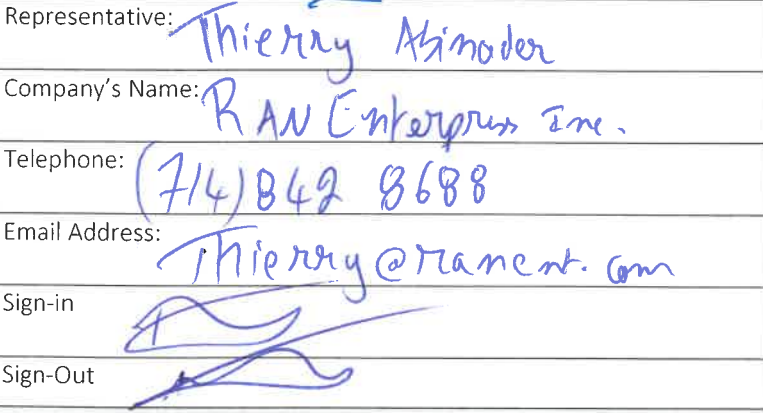 Representative: Thierry Abinader
Company's Name: RAN Enterprises Inc.
Telephone: (714) 842 8688
Email Address: Thierry@ranent.com
Sign-in
Sign-Out